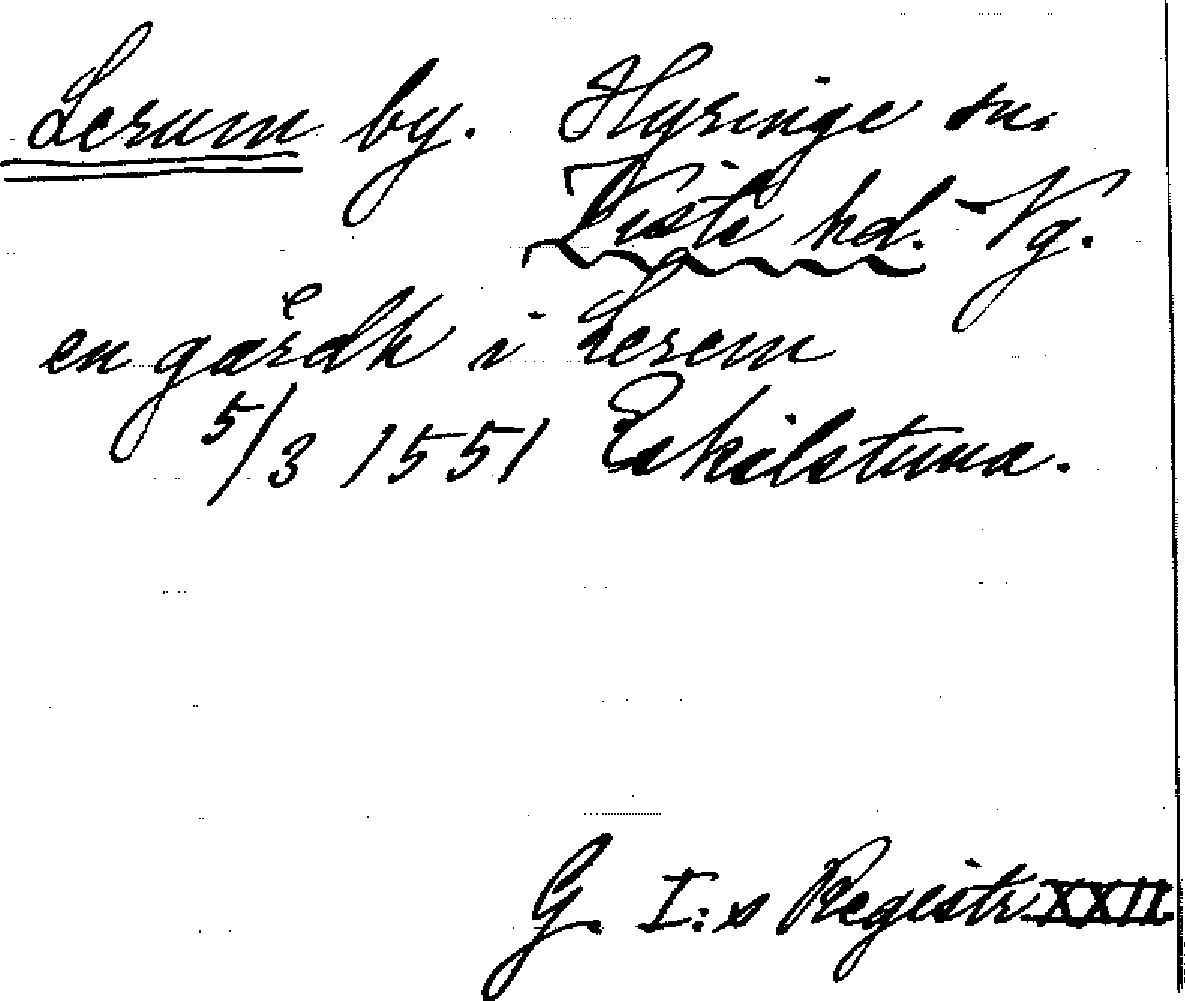 Lerum by. Hyringe sn.
Viste hd. Vg.
en gaͤrdh i Lerem
5/3 1551 Eskilstuna.
G. I:s Registr. XXII